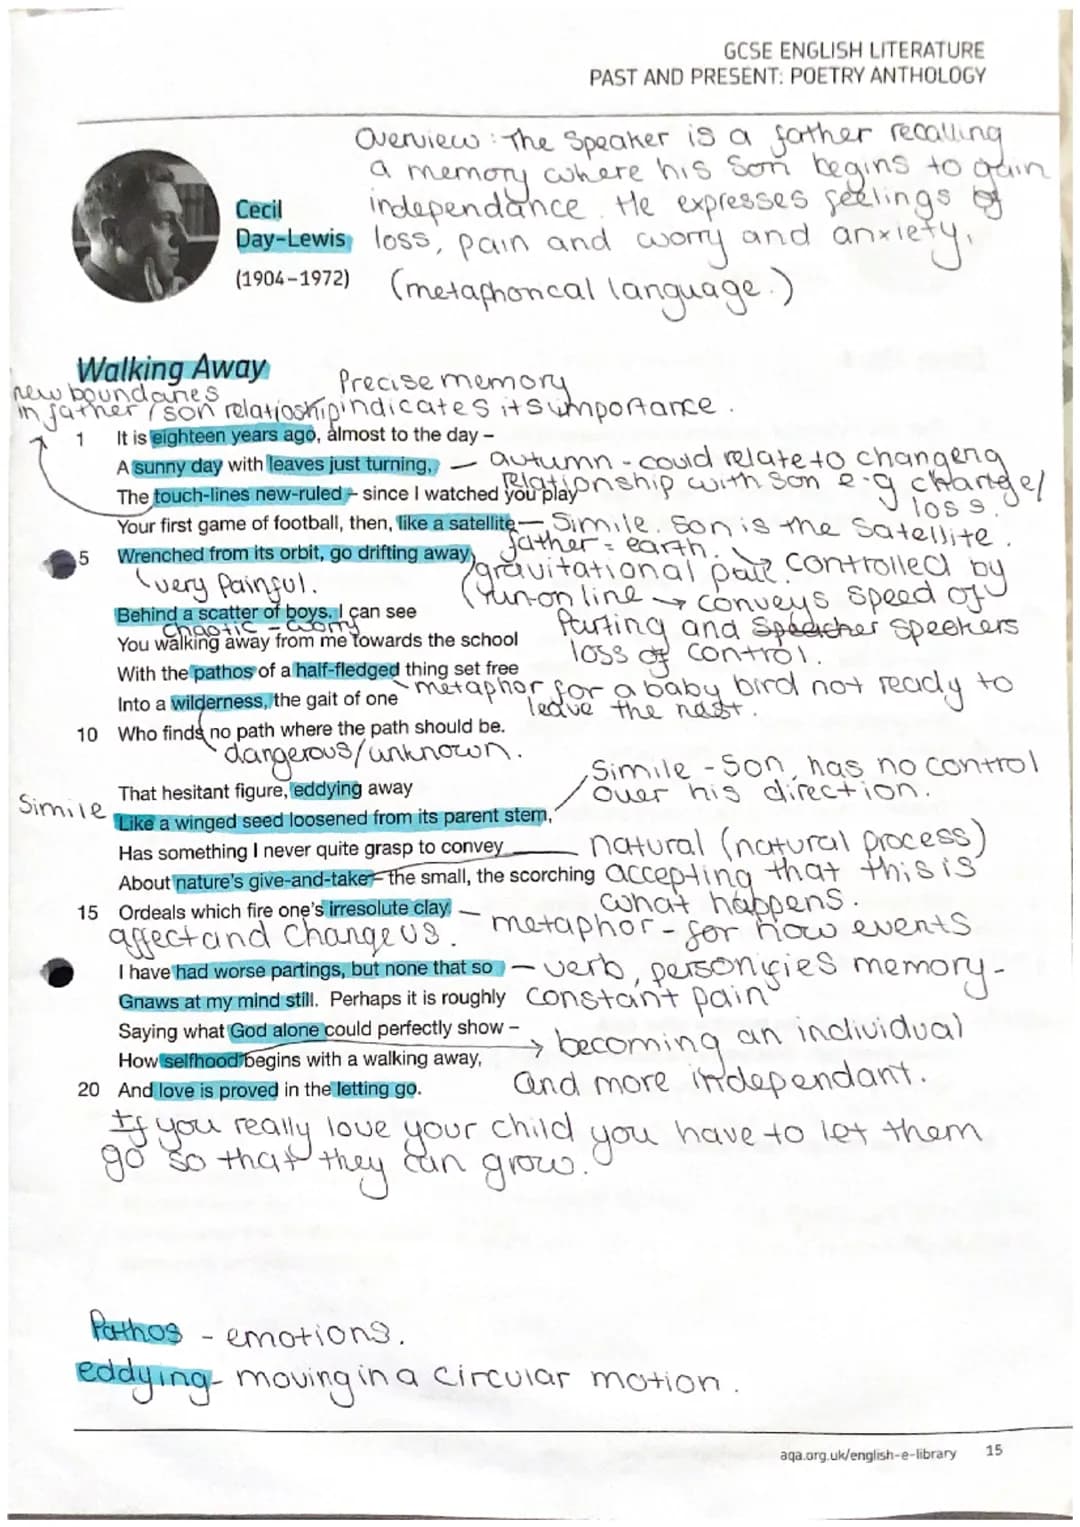 GCSE ENGLISH LITERATURE
PAST AND PRESENT: POETRY ANTHOLOGY
Overview: The Speaker is a father recalling
a memory where his son begins to gain
independance. He expresses feelings of
loss, pain and worry and anxiety.
(metaphorical language.)
Cecil
Day-Lewis
(1904–1972)
Walking Away
new boundaries
in father / son relatioship
Precise memory
indicates its importance.
1 It is eighteen years ago, almost to the day –
A sunny day with leaves just turning,
— autumn - could relate to changeng
relationship with son e.g change/
loss.
The touch-lines new-ruled – since I watched you play
Your first game of football, then, like a satellite
— Simile. Son is the Satellite.
father = earth.
5 Wrenched from its orbit, go drifting away
very painful.
gravitational pull. controlled by
run-on line → conveys speed of
parting and speakers
loss of control.
Behind a scatter of boys. I can see
chaotic - worry
You walking away from me towards the school
With the pathos of a half-fledged thing set free
metaphor for a baby bird not ready to
leave the nest.
Into a wilderness, the gait of one
10 Who finds no path where the path should be.
dangerous/unknown.
That hesitant figure, eddying away
Simile - Son, has no control
over his direction.
Simile
Like a winged seed loosened from its parent stem,
Has something I never quite grasp to convey
natural (natural process)
About nature's give-and-take – the small, the scorching
accepting that this is
what happens.
15 Ordeals which fire one's irresolute clay.
affect and change us.
— metaphor - for how events
I have had worse partings, but none that so
— verb, personifies memory -
constant pain
Gnaws at my mind still. Perhaps it is roughly
Saying what God alone could perfectly show –
How selfhood begins with a walking away,
→ becoming an individual
and more independant.
20 And love is proved in the letting go.
If you really love your child you have to let them
go so that they can grow.
Pathos - emotions.
eddying - moving in a circular motion.
aqa.org.uk/english-e-library 15